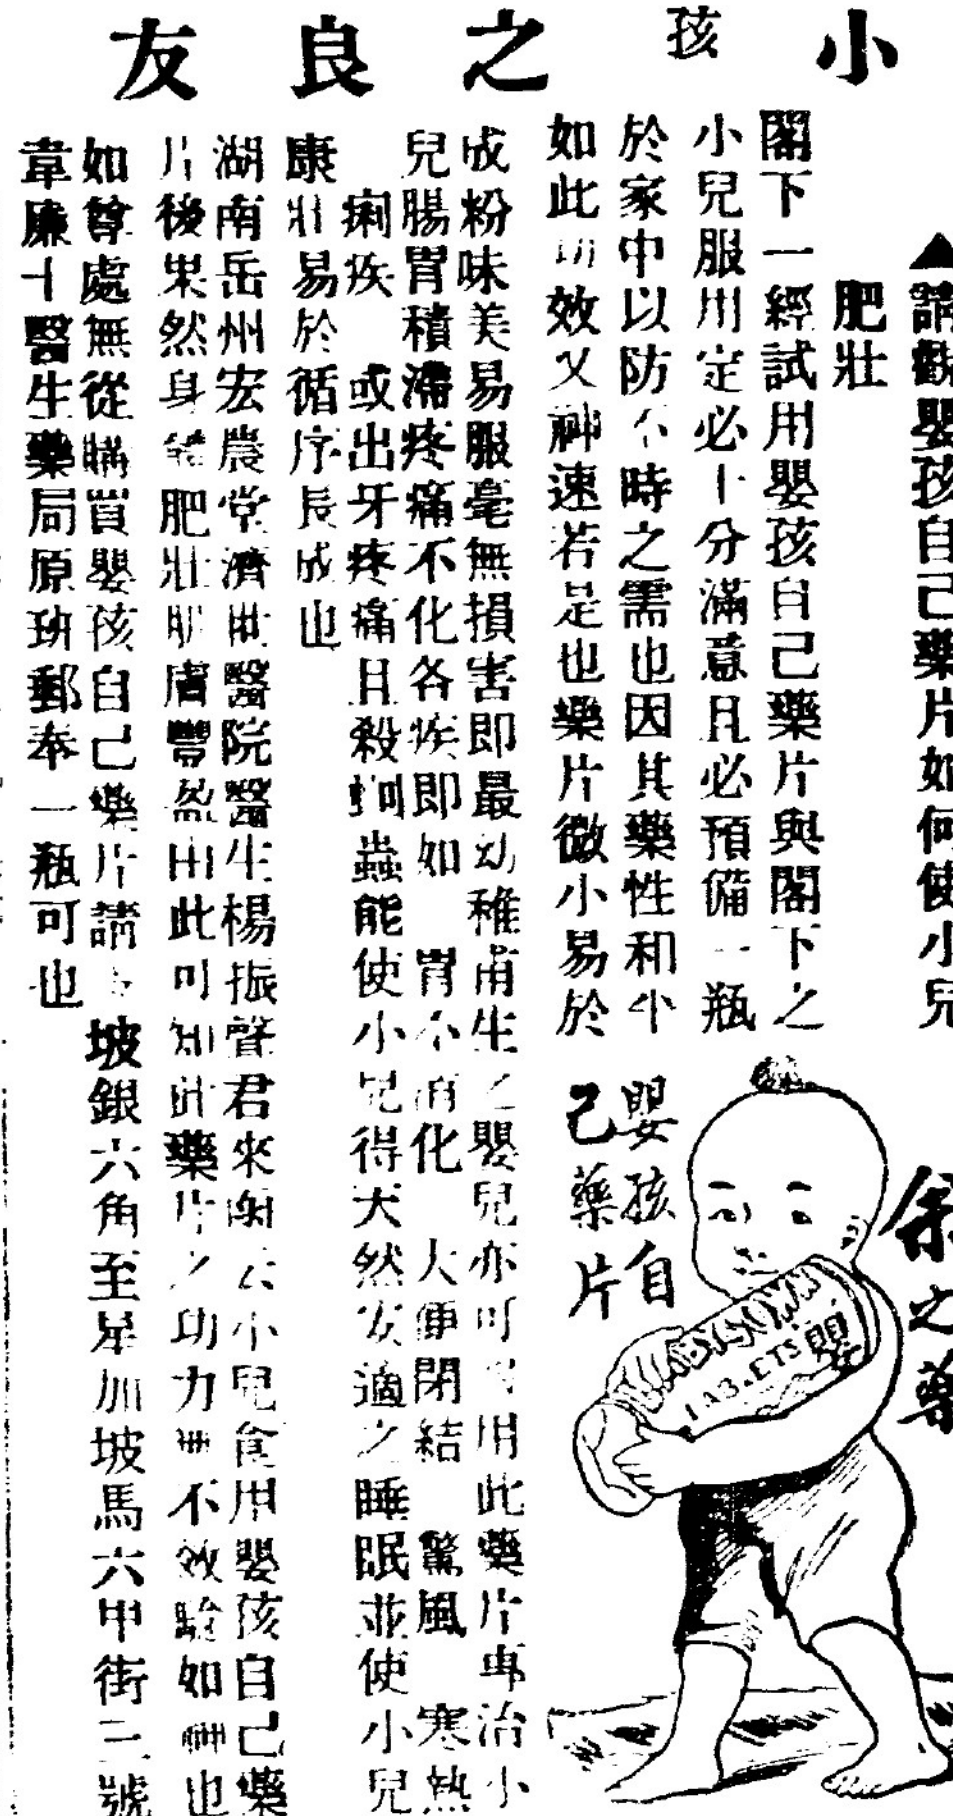 小孩之良友
▲請觀嬰孩自己藥片如何使小兒
肥壯
閣下一經試用嬰孩自己藥片與閣下之
小兒服用定必十分滿意且必預備一瓶
於家中以防不時之需也因其藥性和平
如此功效又神速若是也藥片微小易於
成粉味美易服毫無損害即最幼稚甫生之嬰兒亦可 用此藥片專治小
兒腸胃積滯疼痛不化各疾即如 胃不消化 大便閉結 驚風 寒熱
痢疾 或出牙疼痛且殺蛔蟲能使小兒得天然安適之睡眠並使小兒
康壯易於循序長成也
湖南岳州宏農堂濟世醫院醫生楊振聲君來函云小兒食用嬰孩自己藥
片後果然身體肥壯肌膚豐盈由此可知此藥片之功力無不效驗如神也
如尊處無從購買嬰孩自己藥片請 坡銀六角至星加坡馬六甲街二號
韋廉士醫生藥局原班郵奉一瓶可也
余之藥
嬰孩自
己藥片
BABY'S OWN
TABLETS
嬰